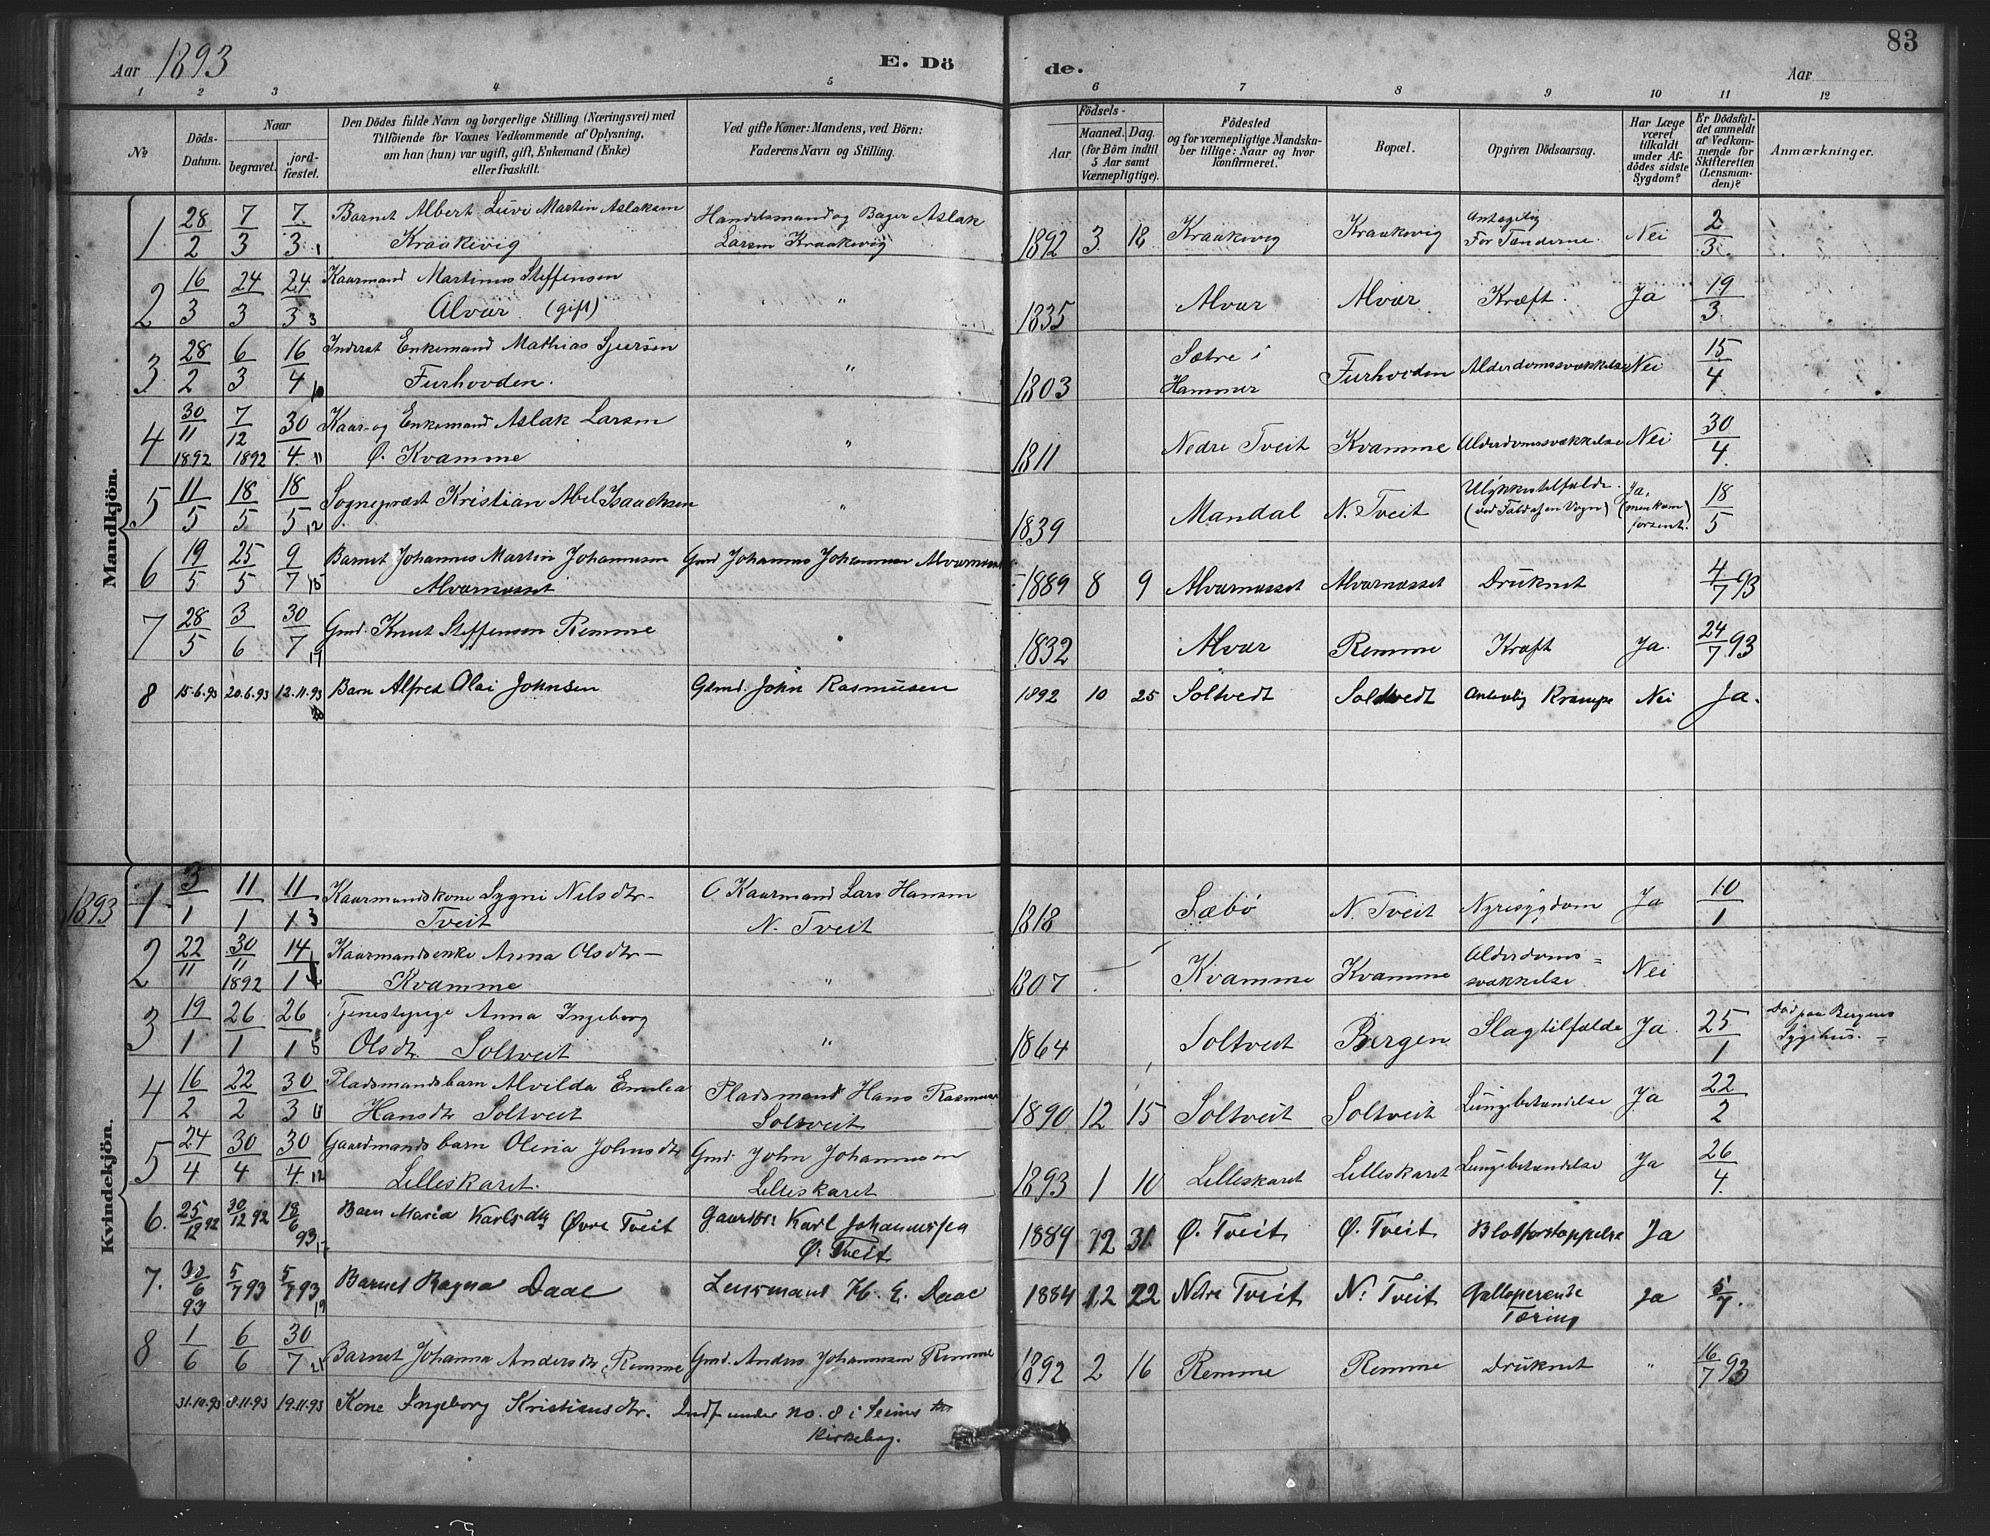 Aar 1893 E. Dö de. Aar 83
1 2 3 4 5 6 7 8 9 10 11 12
№
Döds-
Datum.
Naar
begravet.
jord-
fæstet.
Den Dödes fulde Navn og borgerlige Stilling (Næringsvei) med
Tilföiende for Voxnes Vedkommende af Oplysning,
om han (hun) var ugift, gift, Enkemand (Enke)
eller fraskilt.
Ved gifte Koner: Mandens, ved Börn:
Faderens Navn og Stilling.
Födsels-
Aar
Maaned. Dag.
(for Börn indtil
5 Aar samt
Værnepligtige).
Födested
og for værnepligtige Mandska-
ber tillige: Naar og hvor
konfirmeret.
Bopæl.
Opgiven Dödsaarsag.
Har Læge
været
tilkaldt
under Af-
dödes sidste
Sygdom?
Er Dödsfal-
det anmeldt
af Vedkom-
mende for
Skifteretten
(Lensman-
den)?
Anmærkninger.
Mandkjön.
1 28/2 7/3 7/3 1 Barnet Albert Martin Aslaksen Handelsmand og Bager Aslak 1892 3 18 Kraakevig Kraakevig Antagelig Nei 2/3
Kraakevig Larsen Kraakevig For Tænderne.
2 16/3 24/3 24/3 3 Kaarmand Martinus Steffensen " 1835 Alvær Alvær Kræft. Ja 19/3
Alvær (gift)
3 28/2 6/3 16/4 10 Inderst Enkemand Mathias Sjursen " 1803 Sætre i Furhovden Alderdomssvækkelse Nei 15/4
Furhovden. Hammer
4 30/11 1892 7/12 1892 30/4 11 Kaar- og Enkemand Aslak Larsen " 1811 Nedre Tveit Kvamme Alderdomssvækkelse Nei 30/4
Ø. Kvamme
5 11/5 18/5 18/5 12 Sognepræst Kristian Abel Isaachsen " 1839 Mandal N. Tveit Ulykkestilfælde. Ja, 18/5
(ved Fald af en Vogn) (men kom
forsent.
6 19/5 25/5 9/7 15 Barnet Johannes Martin Johannesen Gmd Johannes Johannesen Alværnæsset 1889 8 9 Alværnæsset Alværnæsset Druknet 4/7 93
Alværnæsset
7 28/5 3/6 30/7 17 Gmd. Knut Steffensen Remme " 1832 Alvær Remme Kræft Ja. 24/7 93
8 15.6.93 20.6.93 12.11.93 Barn Alfred Olai Johnsen Gdmd. John Rasmusen 1892 10 25 Soltvedt Soltvedt Krampe Nei Ja.
1893
Kvindekjön.
1 3/1 11/1 11/1 3 Kaarmandskone Sygni Nilsdtr- Kaarmand Lars Hansen 1818 Sæbö N. Tveit Nyresygdom Ja 10/1
Tveit N. Tveit
2 22/11 30/11 1892 14/1 Kaarmandsenke Anna Olsdtr- " 1807 Kvamme Kvamme Alderdoms= Nei
Kvamme svækkelse
3 19/1 26/1 26/1 5 Tjenestepige Anna Ingeborg " 1864 Soltveit Bergen Slagtilfælde Ja. 25/1 Död paa Bergens
Olsdtr. Soltveit Sygehus.
4 16/2 22/2 30/3 Pladsmandsbarn Alvilda Emilea Pladsmand Hans Rasmusen 1890 12 15 Soltveit Soltveit Lungebetændelse Ja 22/2
Hansdtr Soltveit Soltveit
5 24/4 30/4 30/4 12 Gaardmandsbarn Olina Johnsdtr Gmd. John Johannesen 1893 1 10 Lilleskaret Lilleskaret Lungebetændelse Ja 26/4
Lilleskaret. Lilleskaret
6. 25/12 92 30/12 92 18/6 93 17 Barn Maria Karlsdtr Øvre Tveit Gaardbr. Karl Johannessen 1889 12 31. Ø. Tveit Ø. Tveit Blodforstoppelse Ja
Ø. Tveit
7. 30/6 93 5/7 93 5/7 93 19 Barnet Ragna Daae Lensmand H. E. Daae 1884 12 22 Nedre Tveit N. Tveit Galloperende Ja 5/7.
Tæring
8 1/6 6/6 30/7 21 Barnet Johanna Andersdtr Remme Gmd. Anders Johannesen Remme 1892 2 16 Remme Remme Druknet " 16/7 93
31.10.93 8.11.93 19.11.93 Kone Ingeborg Kristiansdtr. Indf. under no. 8 i Seims
Kirkebog.